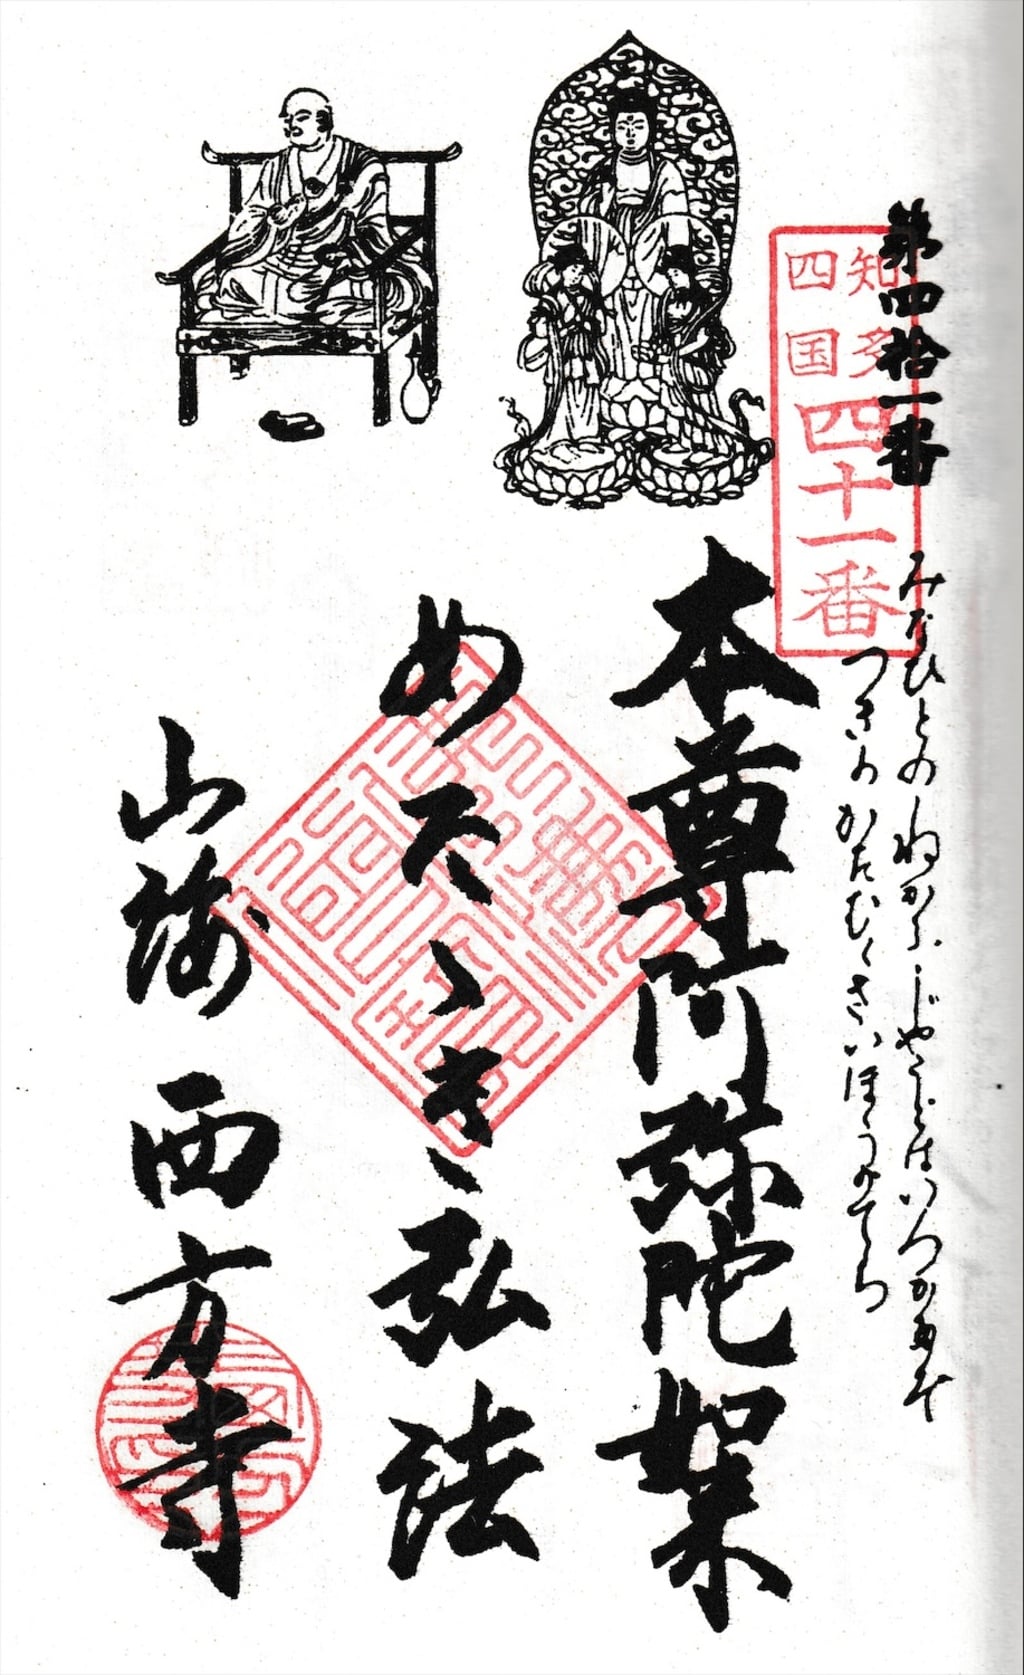 第四拾一番
みなひとの ねがふ じやうどはいつか
つきのかたむくさいほうのてら
知多
四国
四十一番
本尊阿弥陀如来
めたゝき弘法
山海 西方寺